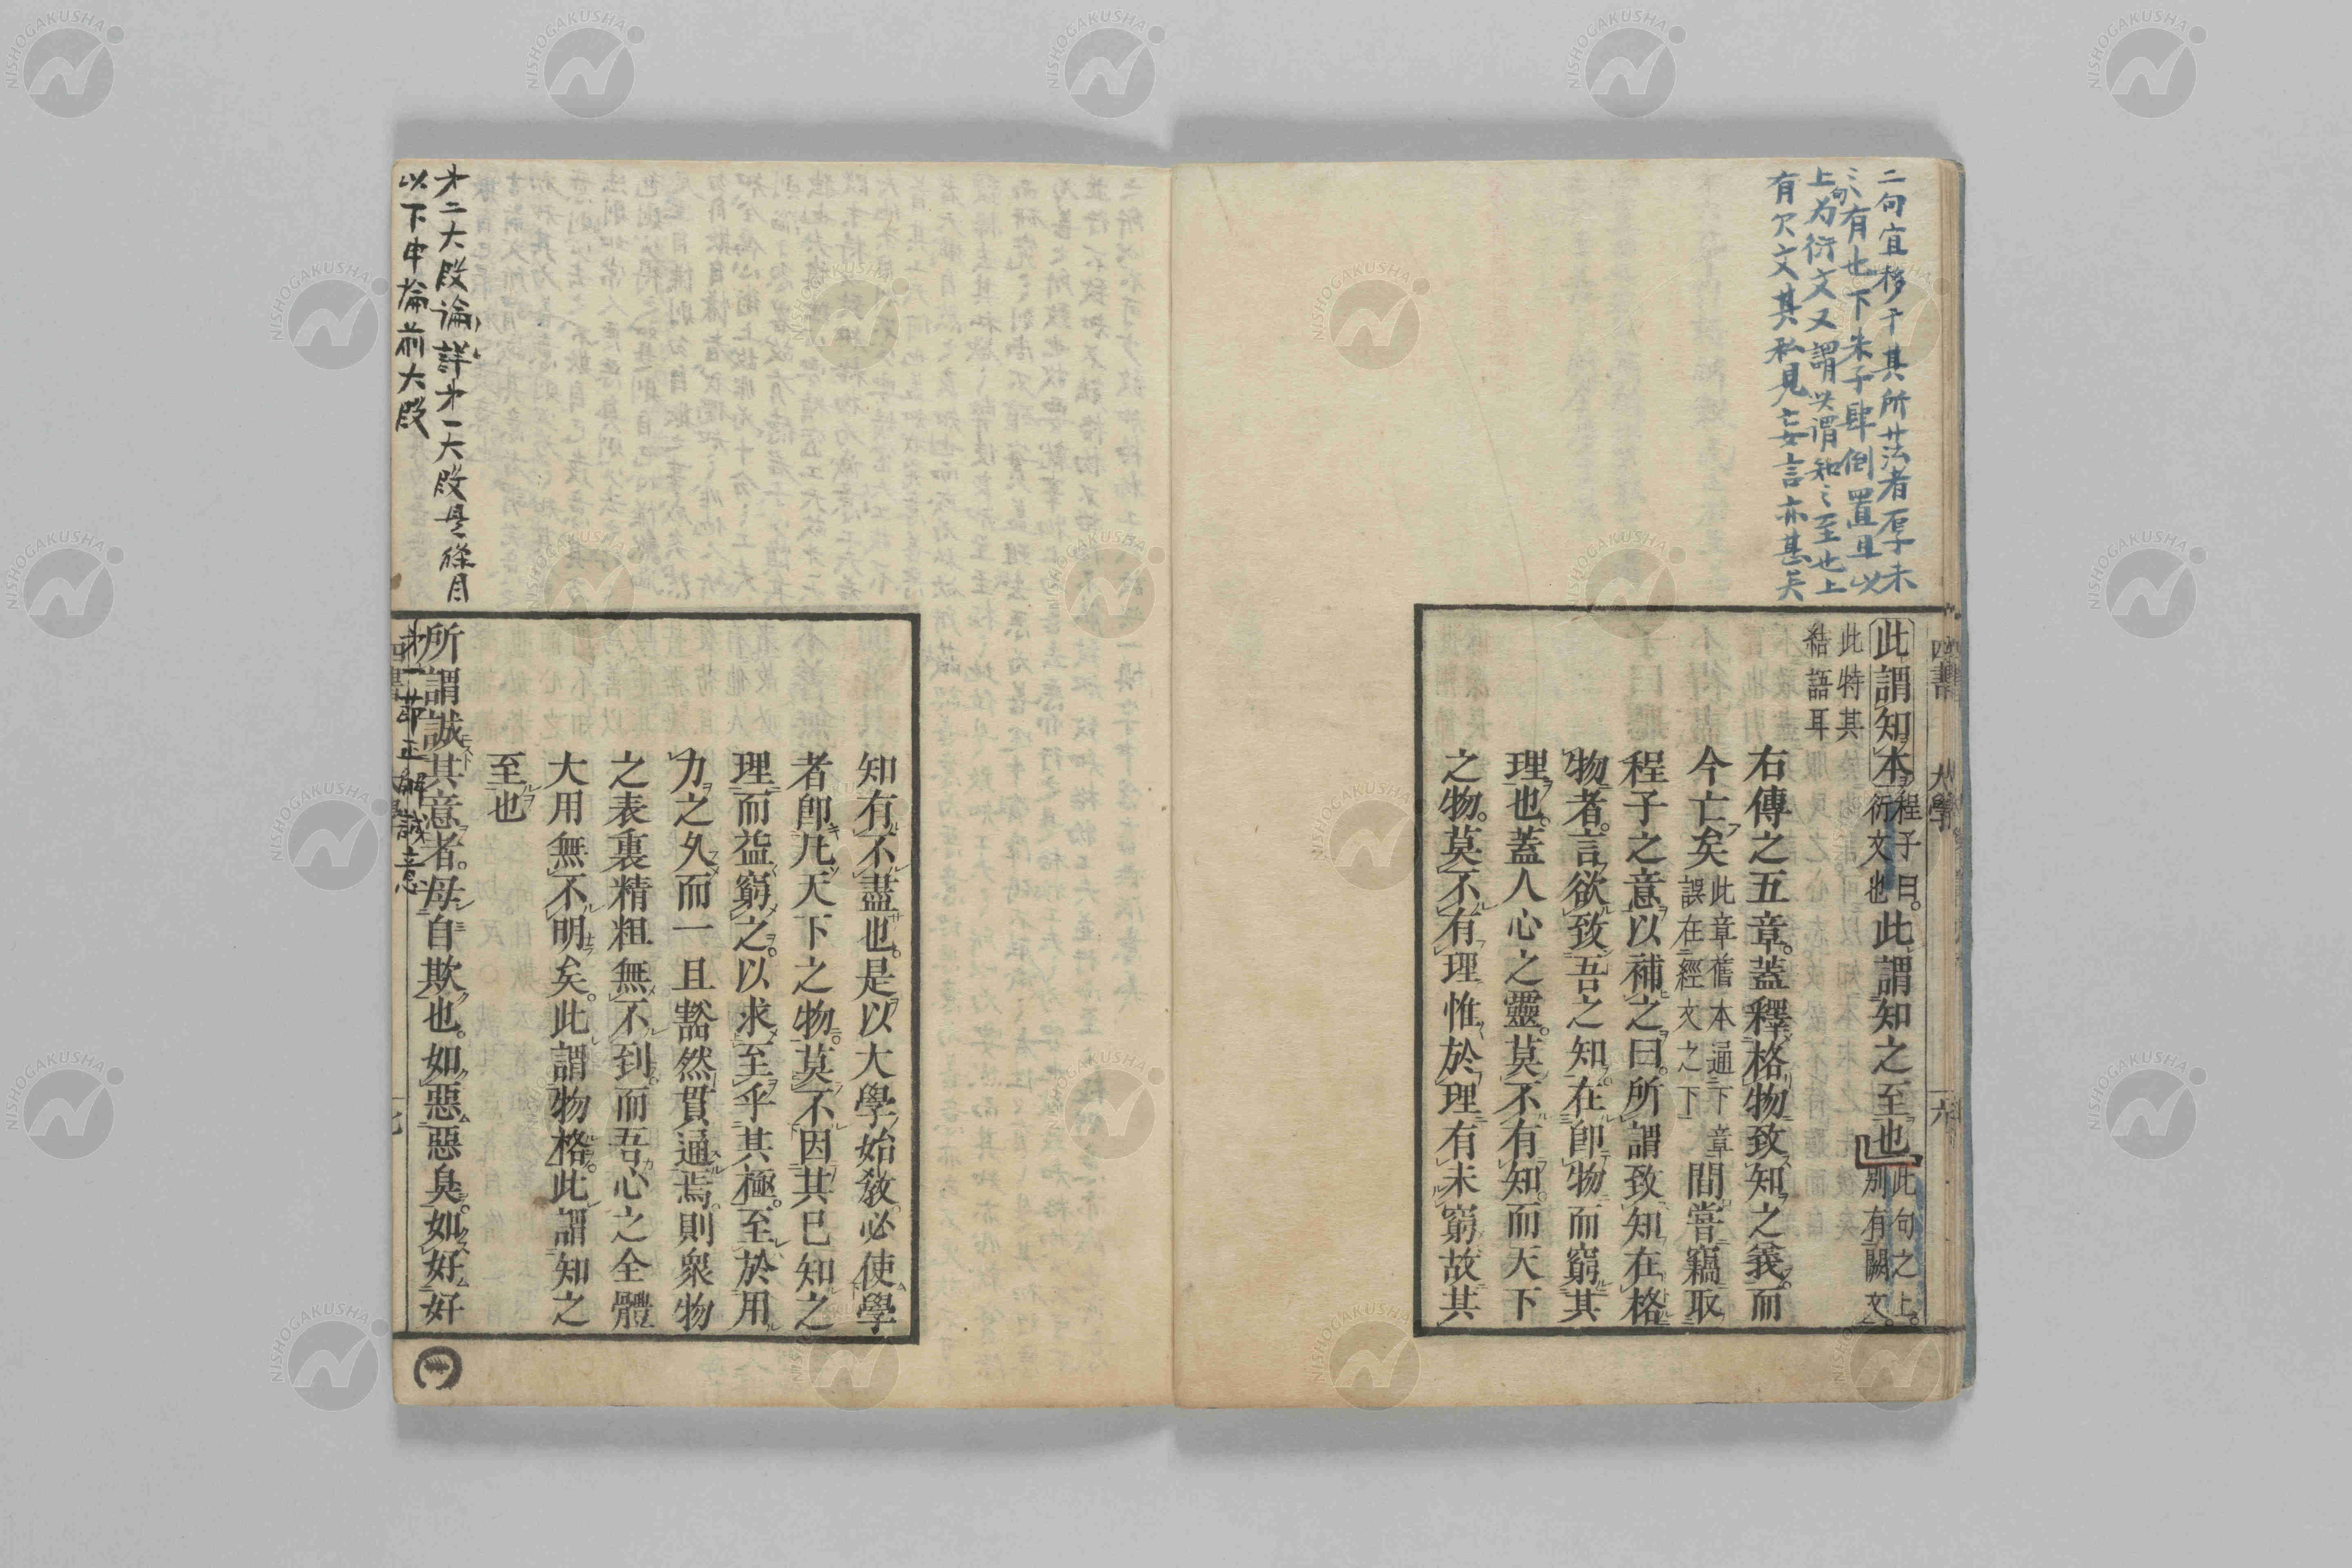 二句宜移于其所⿱艹法者厚乎未
之有也下朱子肆倒置且以
上句为衍文又謂此謂知之至也上
有欠文其私見妄言亦甚矣
四書 大學 六
此謂知本程子曰。衍文也此謂知之至也此句之上。別有闕文。
此特其結語耳
右傳之五章。蓋釋格物致知之義。而
今亡矣此章舊本通下章誤在經文之下間嘗竊取
程子之意以補之曰。所謂致知在格
物者。言欲致吾之知。在卽物而窮其
理也。蓋人心之靈。莫不有知。而天下
之物。莫不有理惟於理有未窮故其
知有不盡也。是以大學始敎。必使學
者卽凡天下之物。莫不因其已知之
理而益窮之。以求至乎其極。至於用
力之久而一旦豁然貫通焉。則衆物
之表裏精粗無不到。而吾心之全體
大用無不明矣。此謂物格。此謂知之
至也
才二大段論詳才一大段是條目
以下申論前大段
所謂誠其意者。毋自欺也。如惡惡臭。如好好
才一節正解誠意
NISHOGAKUSHA